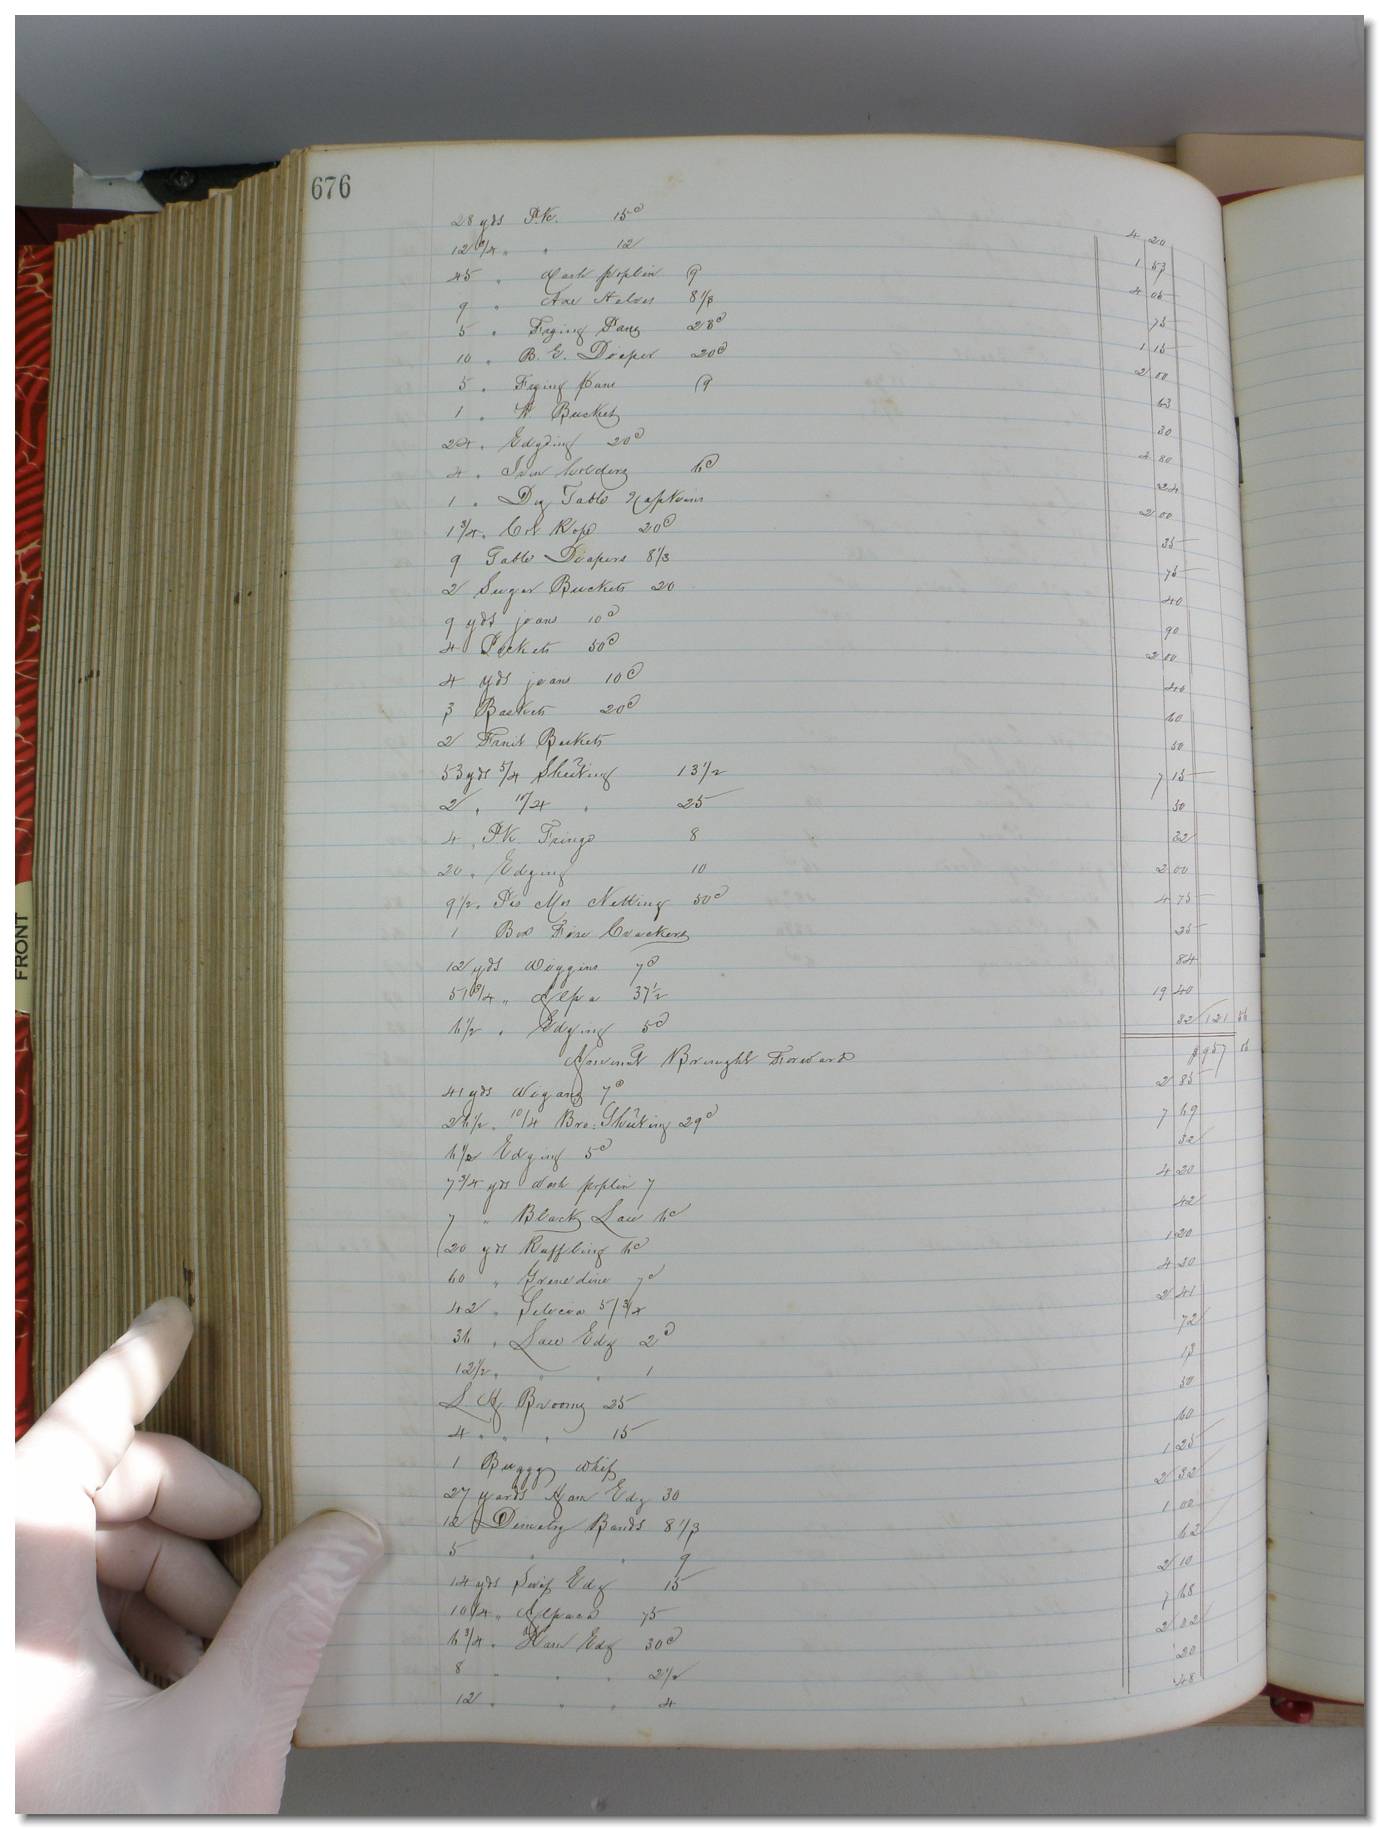 676
28 yds P.K. 15c 4 20
12 3/4 " " 12 1 53
45 " Wash poplin 9 4 05
9 " Axe Helves 8 1/3 75
5 " Frying Pans 23c 1 15
10 " B. E. Diaper 20c 2 00
5 " Frying Pans 63
1 " W Bucket 30
24 " Edgding 20c 4 80
4 " Iron holders 6c 24
1 " Doz Table Napkins 2 00
1 3/4 " Cot Rope 20c 35
9 Table Diapers 8 1/3 75
2 Sugar Buckets 20 40
9 yds jeans 10c 90
4 Pockets 50c 2 00
4 yds jeans 10c 40
3 Baskets 20c 60
2 Fruit Baskets 50
53 yds 5/4 Sheeting 13 1/2 7 15
2 " 10/4 " 25 50
4 " P.K. Fringe 8 32
20 " Edging 10 2 00
9 1/2 " Pcs Mos Netting 50c 4 75
1 Box Fire Crackers 25
12 yds Wiggins 7c 84
51 3/4 " Alpa 37 1/2 19 40
6 1/2 " Edging 5c 32 121 56
Amount Brought Forward $957 56
41 yds Wigans 7c 2 85
26 1/2 " 10/4 Bro. Sheeting 29c 7 69
6 1/2 Edging 5c 32
7 3/4 yds Wash poplin 7 4 20
7 " Black Lace 6c 42
20 yds Ruffling 6c 1 20
60 " Grenedine 7c 4 20
42 " Silecia 5/3/4 2 41
36 " Lace Edg 2c 72
12 1/2 " " " 1 13
2 H Brooms 25 50
4 " " " 15 60
1 Buggy Whip 1 25
27 yards Ham Edg 30 2 32
12 Dimety Bands 8 1/3 1 00
5 " " 9 62
14 yds Swis Edg 15 2 10
10 1/4 " Alpaca 75 7 68
6 3/4 " Ham Edg 30c 2 02
8 " " " 2 1/2 20
12 " " " 4 48
FRONT